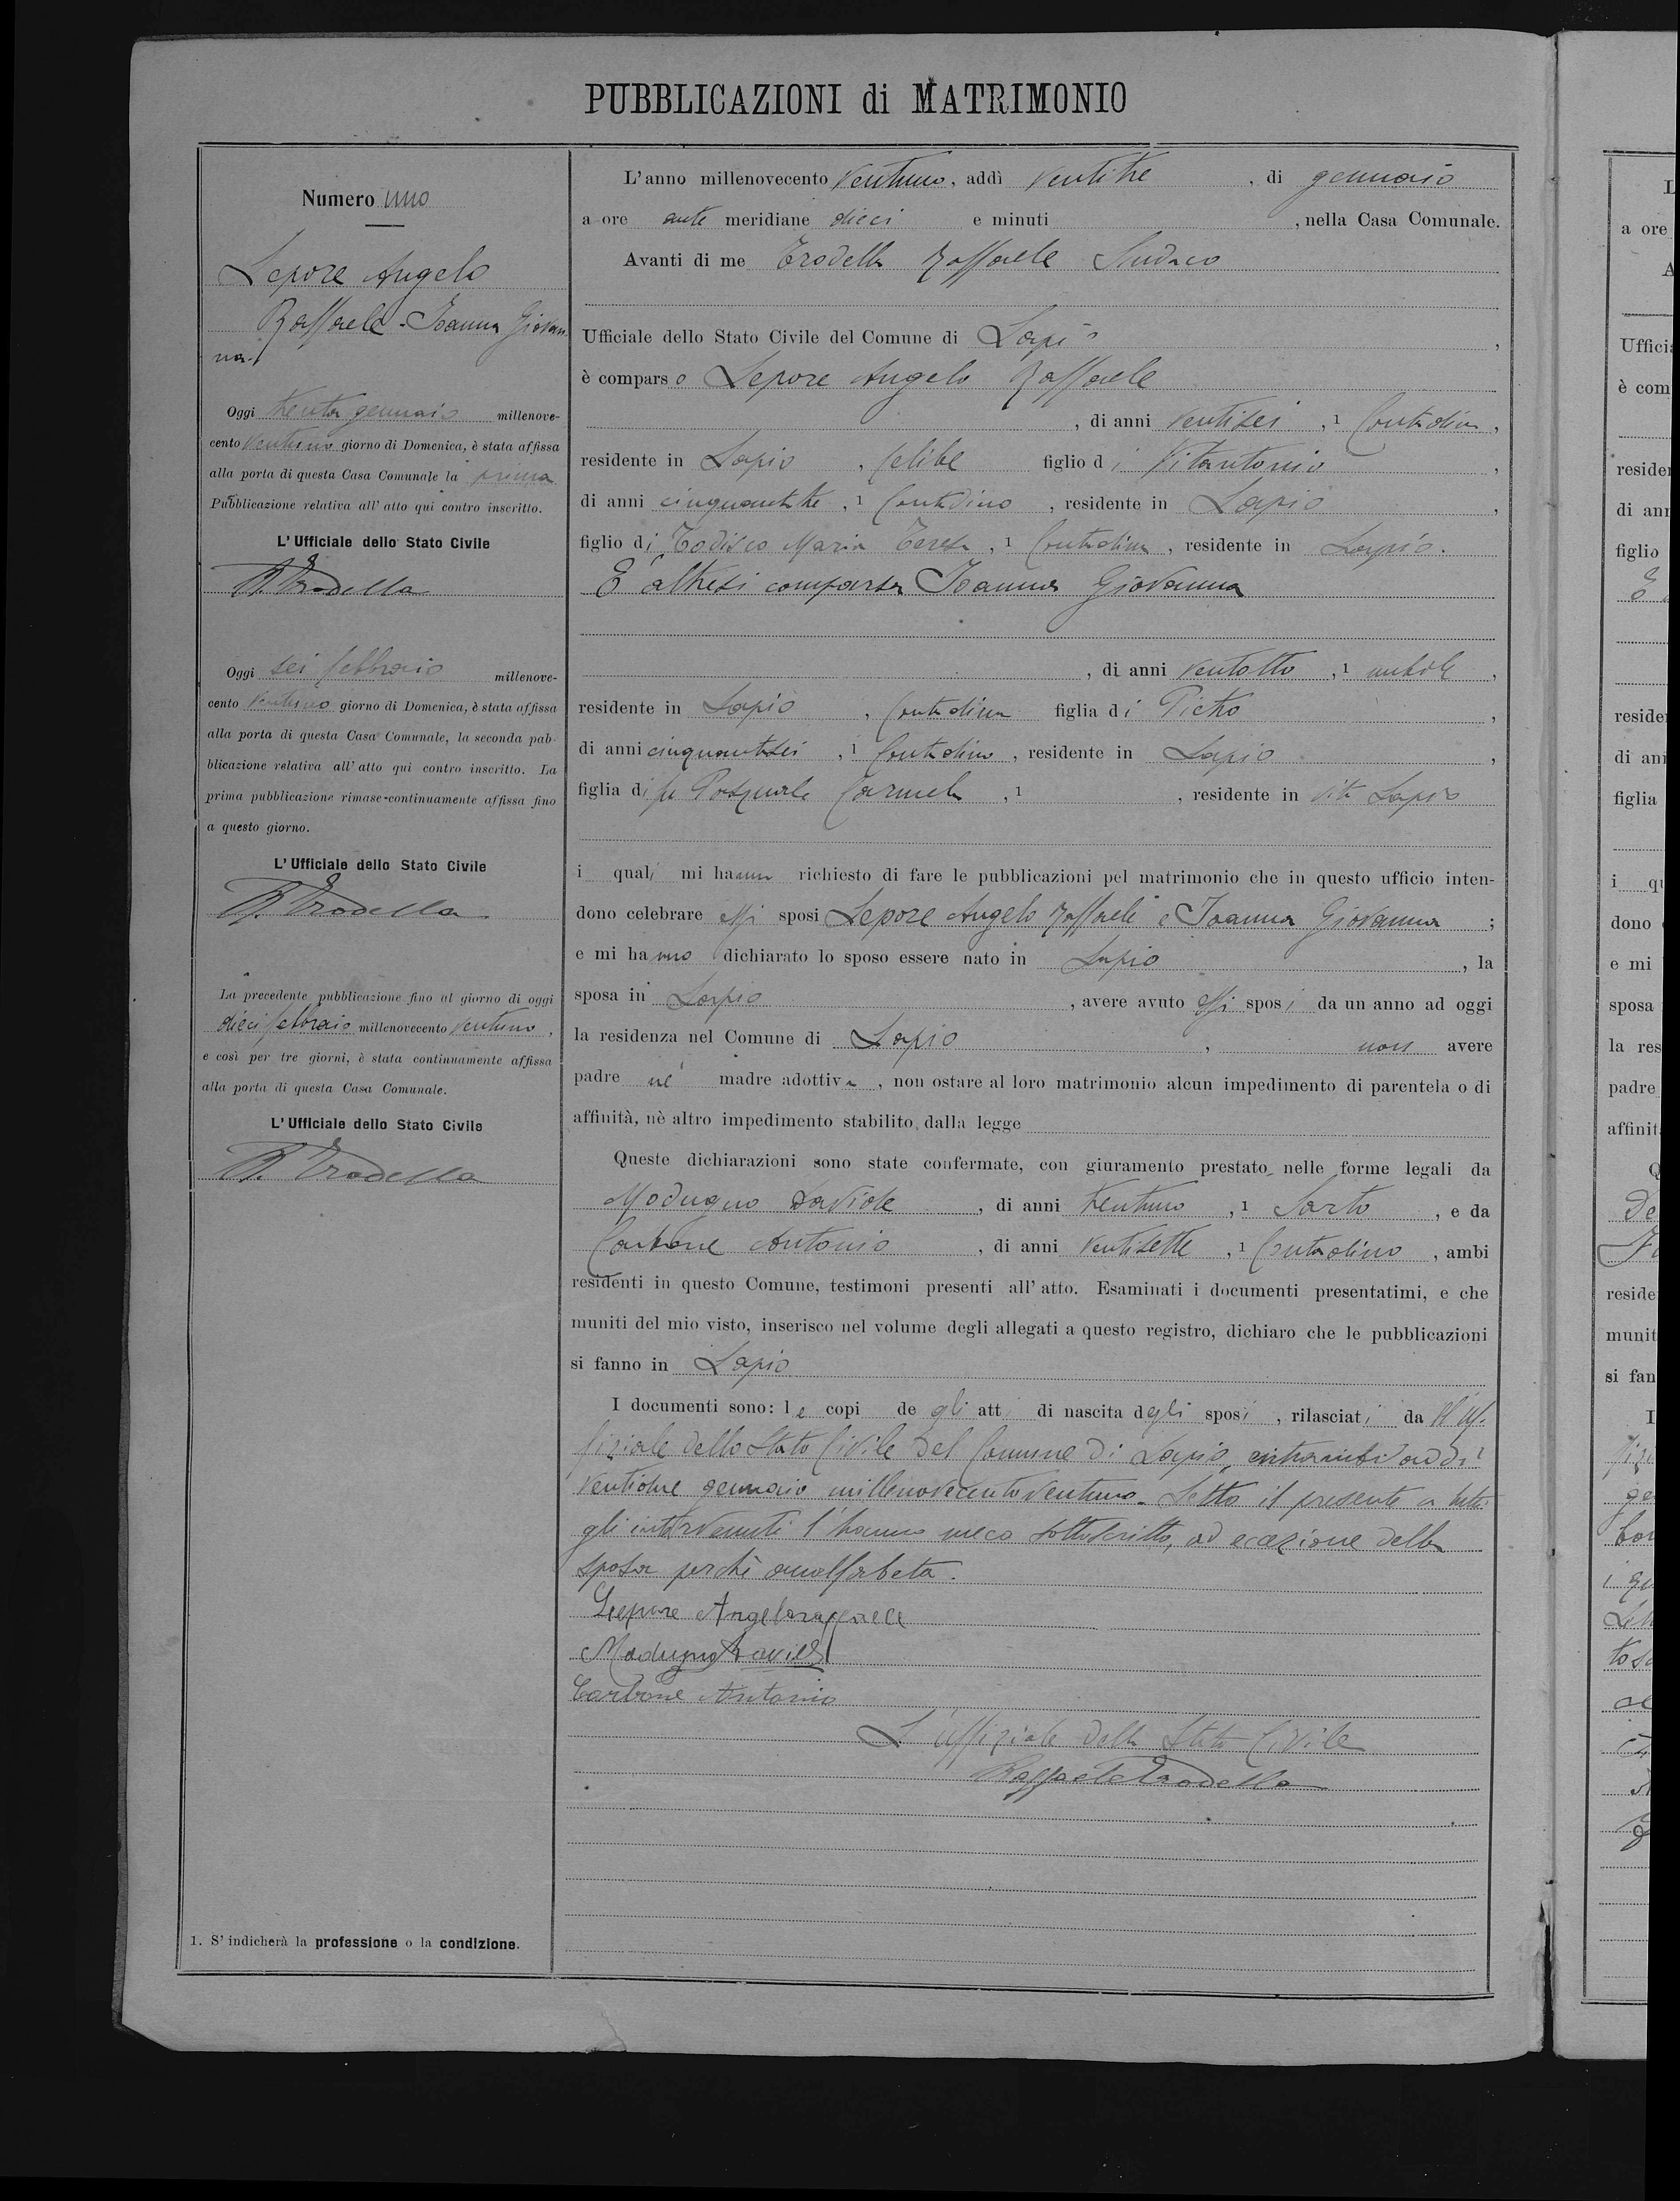 PUBBLICAZIONI di MATRIMONIO
Numero uno
Lepore Angelo
Raffaele - Ioanna Giovan
na.
Oggi trenta gennaio millenove-
cento ventuno giorno di Domenica, è stata affissa
alla porta di questa Casa Comunale la prima
Pubblicazione relativa all' atto qui contro inscritto.
L' Ufficiale dello Stato Civile
R. Trodella
Oggi sei febbraio millenove-
cento ventuno giorno di Domenica, è stata affissa
alla porta di questa Casa Comunale, la seconda pub-
blicazione relativa all' atto qui contro inscritto. La
prima pubblicazione rimase continuamente affissa fino
a questo giorno.
L' Ufficiale dello Stato Civile
R. Trodella
La precedente pubblicazione fino al giorno di oggi
dieci febbraio millenovecento ventuno,
e così per tre giorni, è stata continuamente affissa
alla porta di questa Casa Comunale.
L' Ufficiale dello Stato Civile
R. Trodella
1. S' indicherà la professione o la condizione.
L' anno millenovecento ventuno, addì ventitre, di gennaio
a ore ante meridiane dieci e minuti , nella Casa Comunale.
Avanti di me Trodella Raffaele Sindaco
Ufficiale dello Stato Civile del Comune di Lapio,
è comparso Lepore Angelo Raffaele
, di anni ventisei, 1 Contadino,
residente in Lapio, celibe figlio di Vitantonio,
di anni cinquantatre, 1 Contadino, residente in Lapio,
figlio di Todisco Maria Teresa, 1 Contadina, residente in Lapio.
E' altresi comparsa Ioanna Giovanna
, di anni ventotto, 1 nubile,
residente in Lapio, Contadina figlia di Pietro,
di anni cinquantasei, 1 Contadino, residente in Lapio,
figlia di fu Pasquale Carmela, 1 , residente in vita Lapio
i quali mi hanno richiesto di fare le pubblicazioni pel matrimonio che in questo ufficio inten-
dono celebrare essi sposi Lepore Angelo Raffaele e Ioanna Giovanna;
e mi hanno dichiarato lo sposo essere nato in Lapio, la
sposa in Lapio, avere avuto essi sposi da un anno ad oggi
la residenza nel Comune di Lapio, non avere
padre nè madre adottiva, non ostare al loro matrimonio alcun impedimento di parentela o di
affinità, nè altro impedimento stabilito dalla legge
Queste dichiarazioni sono state confermate, con giuramento prestato nelle forme legali da
Modugno Daviole, di anni trentuno, 1 Sarto, e da
Carbone Antonio, di anni ventisette, 1 Contadino, ambi
residenti in questo Comune, testimoni presenti all' atto. Esaminati i documenti presentatimi, e che
muniti del mio visto, inserisco nel volume degli allegati a questo registro, dichiaro che le pubblicazioni
si fanno in Lapio
I documenti sono: le copi de gli atti di nascita degli sposi, rilasciati da ll' Uf-
fiziale dello Stato Civile del Comune di Lapio, entrambi addì
ventidue gennaio millenovecentoventuno. Letto il presente a tutti
gli intervenuti l' hanno meco sottoscritto, ad eccezione della
sposa perchè analfabeta.
Lepore Angeloraffaele
Modugno
Carbone Antonio
L' uffiziale dello Stato Civile
Raffaele Trodella
a ore
Ufficia
è com
reside
di ann
figlio
reside
di ann
figlia
i qu
dono
e mi
sposa
la res
padre
affinit
reside
munit
si fan